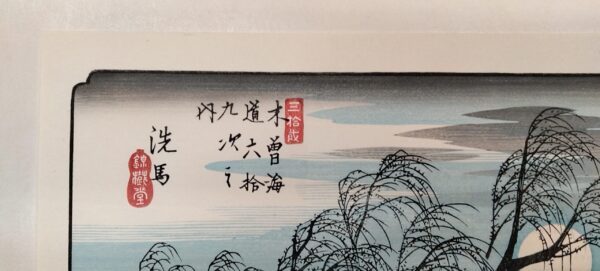 三拾弐
木曾海
道六拾
九次之
内
洗馬
錦樹堂